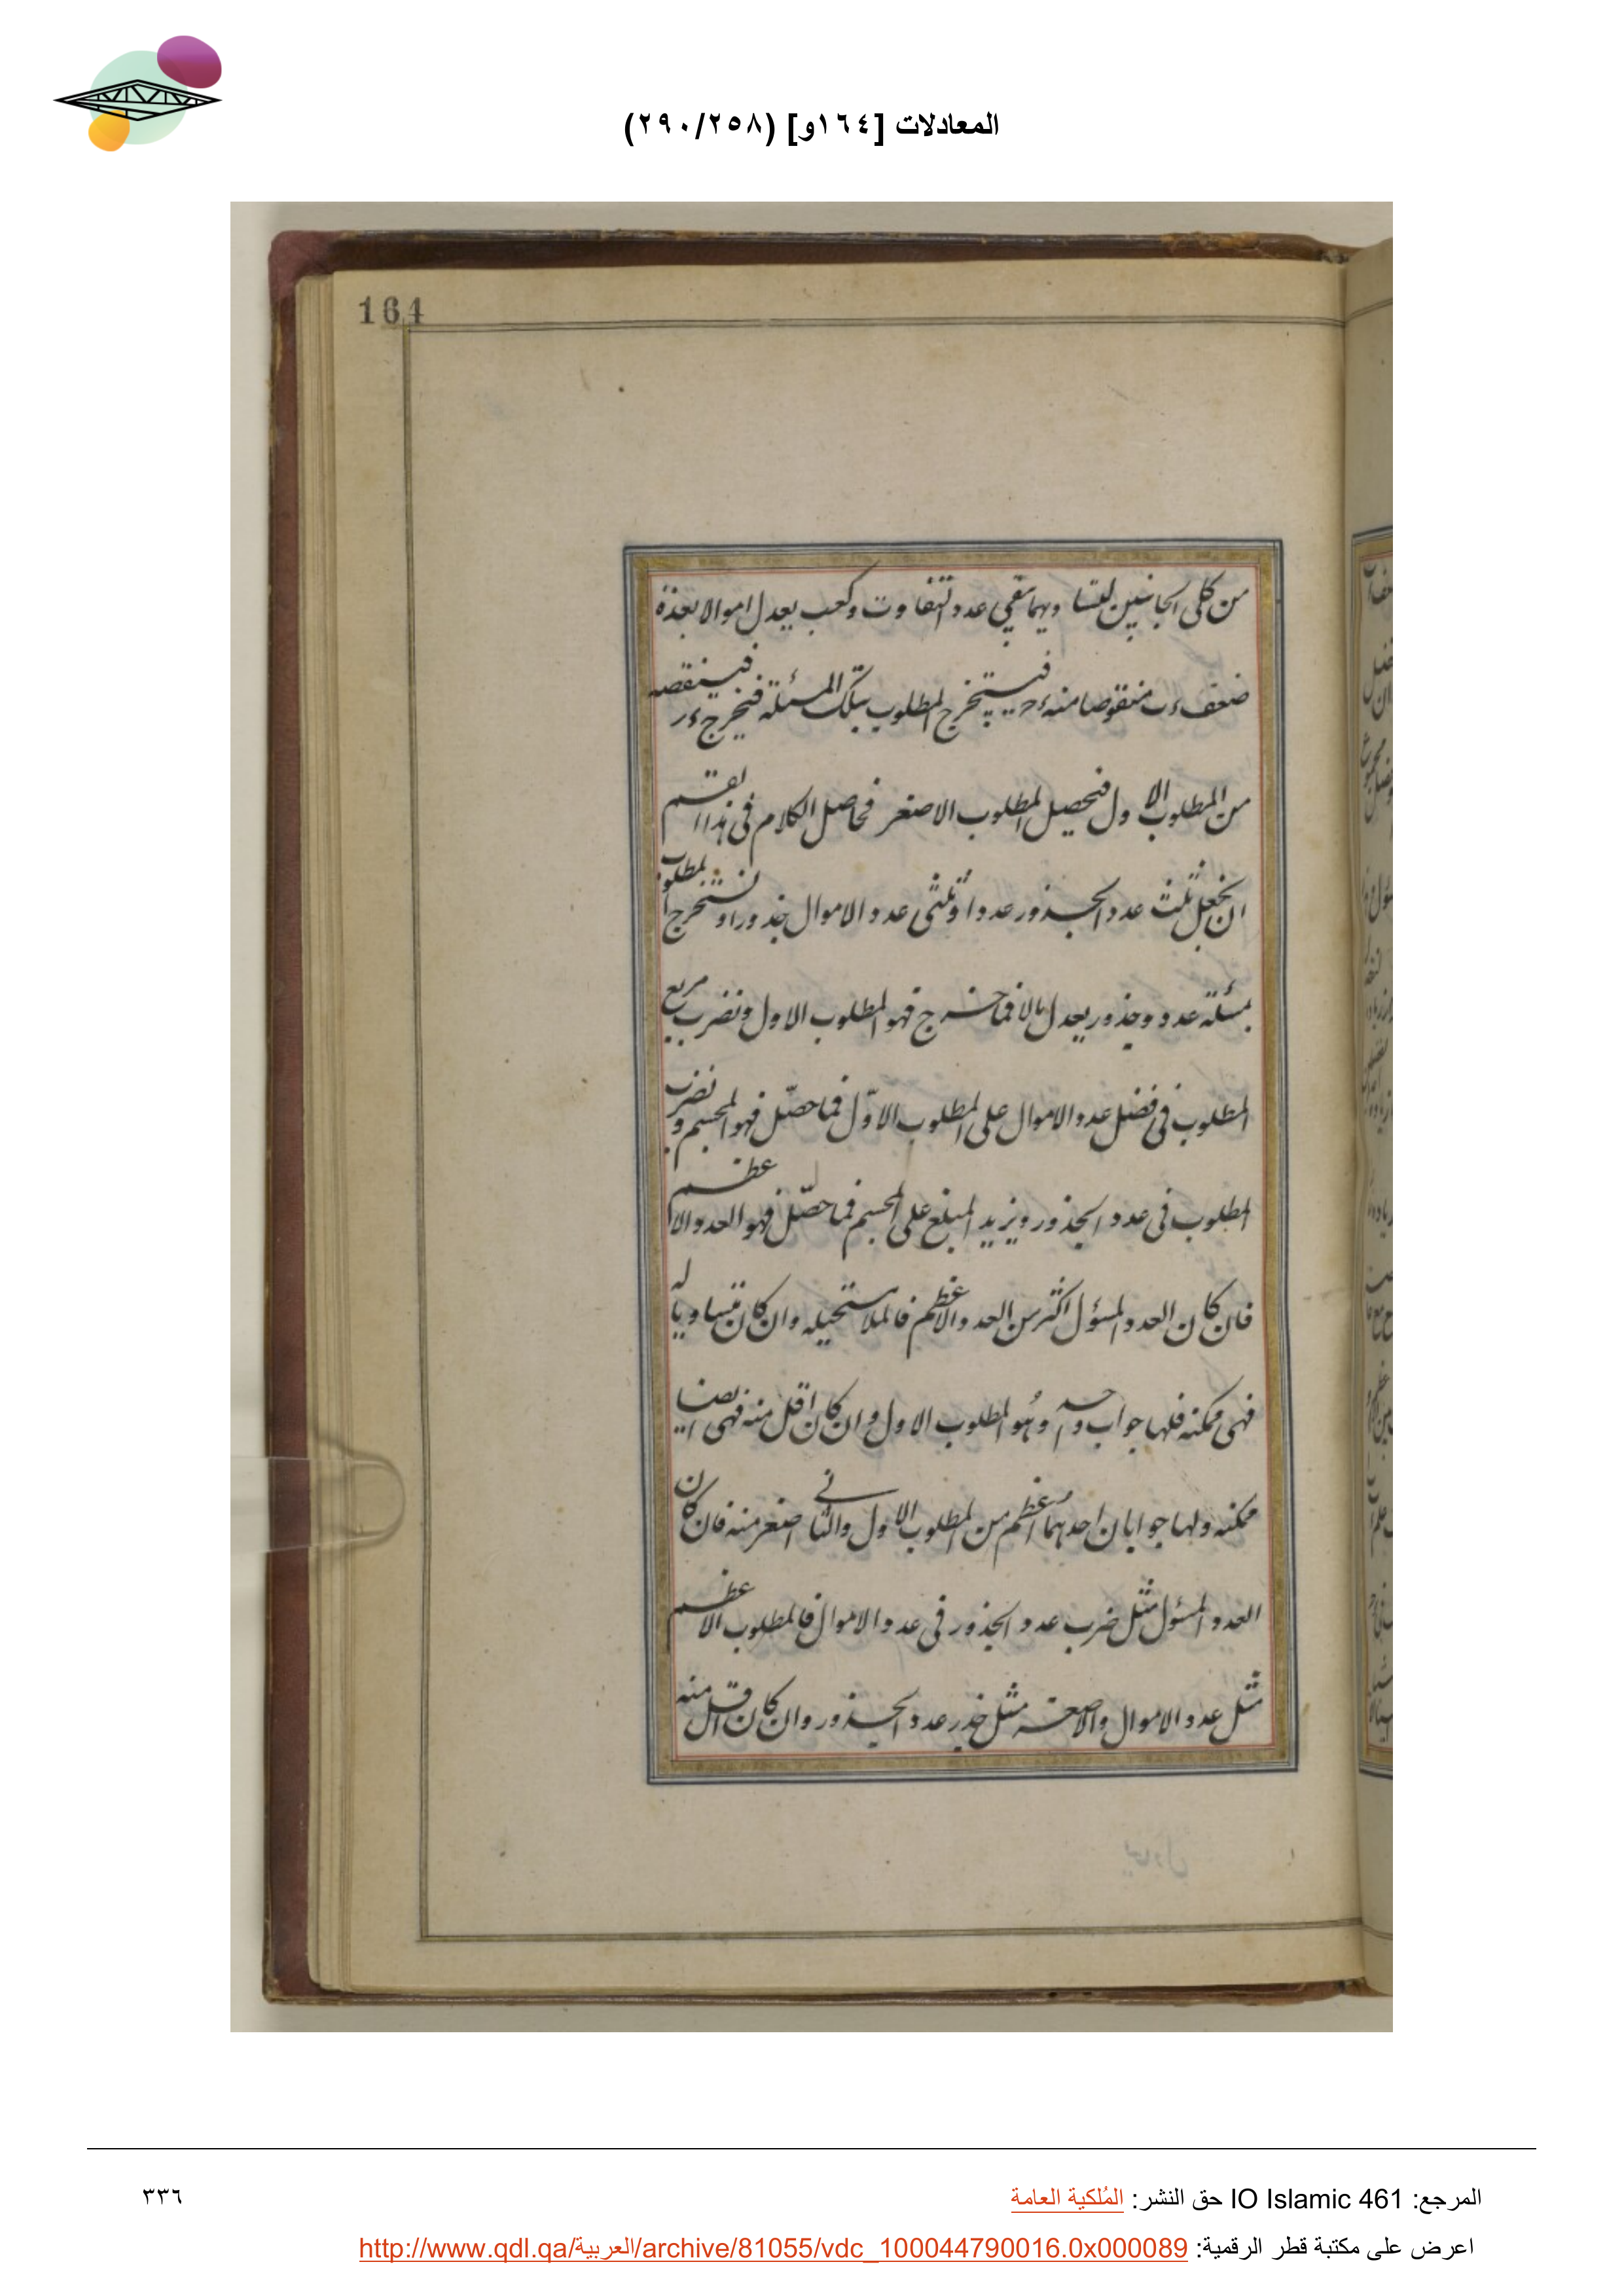 المعادلات [١٦٤و] (٢٩٠/٢٥٨)
164
من كلى الجانبين ليتساويهما تبقى عدد التفاوت وكعب يعدل اموالا بعدة
ضعف ء ب منقوصا منه ء ح فيستخرج المطلوب بتلك المسئلة فيخرج ء ر فينقصه
من المطلوب الاول فتحصيل المطلوب الاصغر فحاصل الكلام فى هذا القسم
ان نجعل ثلث عدد الجذور عددا وثلثى عدد الاموال جذورا ونستخرج المطلوب
بمسئلة عدد وجذور يعدل مالا فما خرج فهو المطلوب الاول ونضرب مربع
المطلوب فى فضل عدد الاموال على المطلوب الاوّل فما حصّل فهو المجسم ونضرب
المطلوب فى عدد الجذور ويزيد المبلغ على المجسم فما حصّل فهو العدد الاعظم
فان كان العدد المسؤل اكثر من العدد الاعظم فالمسئلة مستحيله وان كان متساويا له
فهى ممكنه فلها جواب واحد وهُو المطلوب الاول وان كان اقل منه فهى ايضا
ممكنه ولها جوابان احدهما اعظم من المطلوب الاول والثانى اصغر منه فان كان
العدد المسؤل مثل ضرب عدد الجذور فى عدد الاموال فالمطلوب الاعظم
مثل عدد الاموال والاصغر مثل جذر عدد الجذور وان كان اقل منه
المرجع: IO Islamic 461 حق النشر: المُلكية العامة
٣٣٦
اعرض على مكتبة قطر الرقمية: http://www.qdl.qa/العربية/archive/81055/vdc_100044790016.0x000089